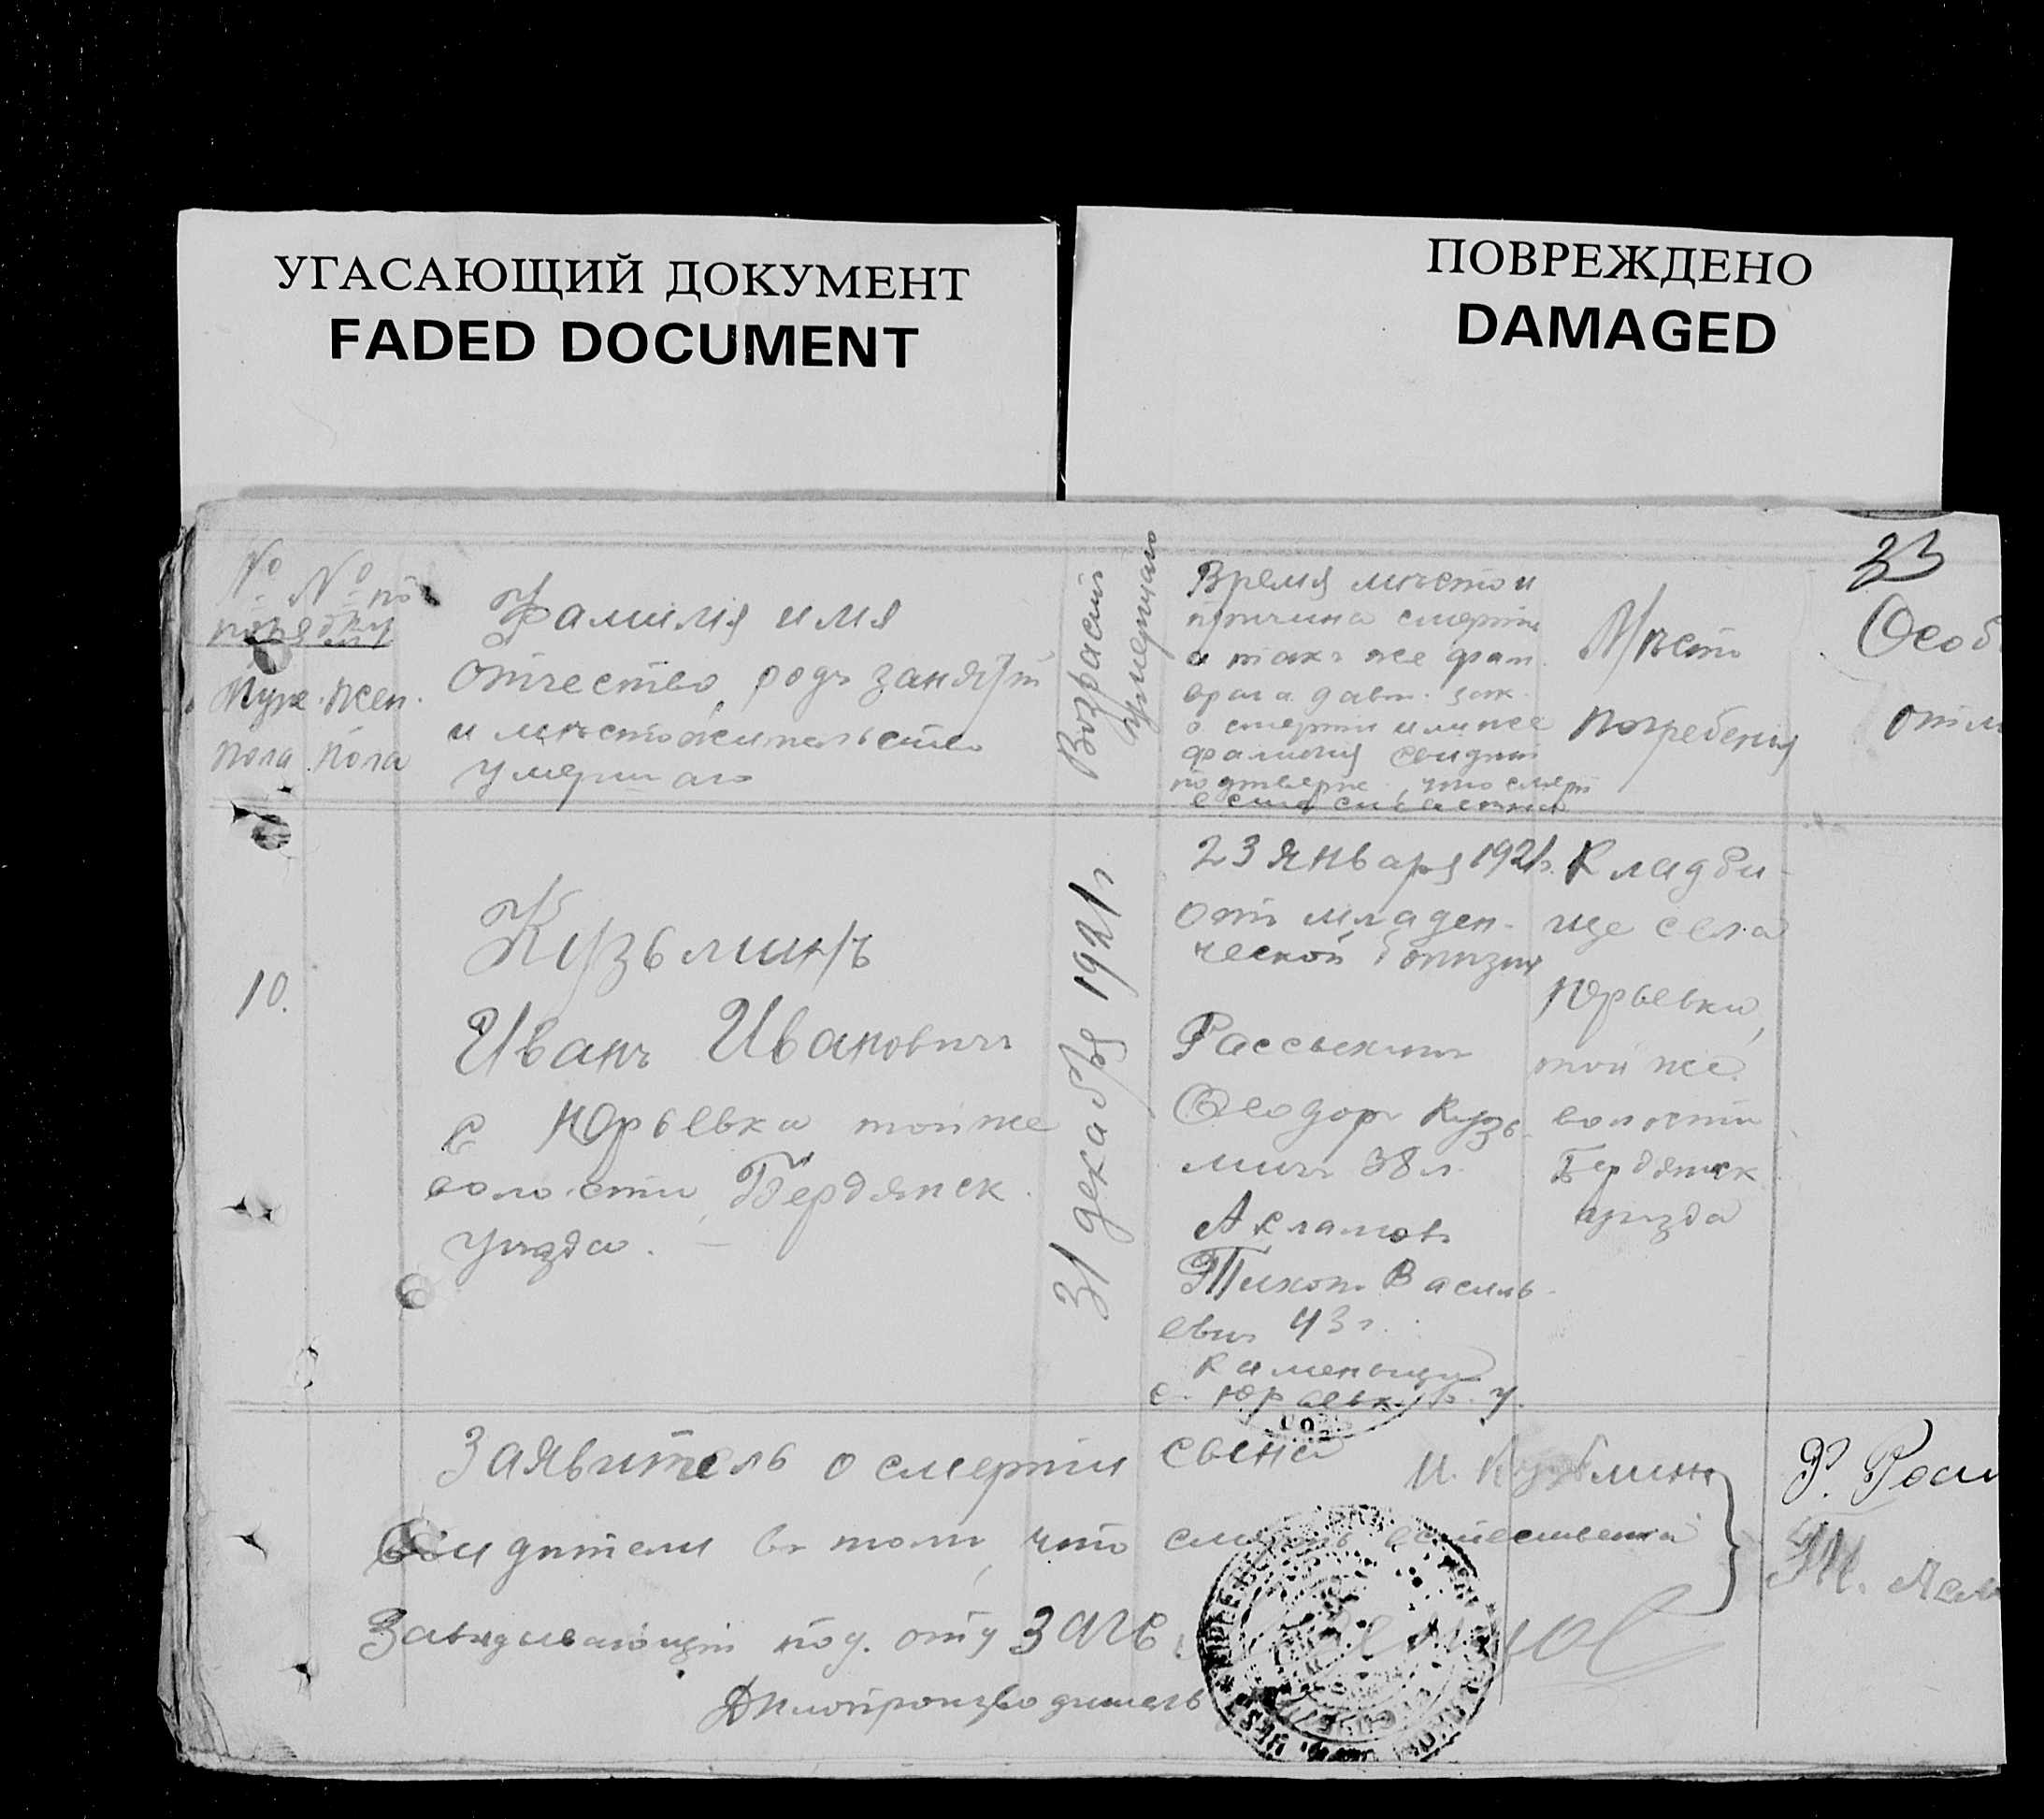 УГАСАЮЩИЙ ДОКУМЕНТ
FADED DOCUMENT
ПОВРЕЖДЕНО
DAMAGED
33
№ № по
порядку
Муж. Жен.
пола пола
Фамилия имя
отчество, родъ занятій
и мѣстожительство
умершаго
Возрастъ
умершаго
Время мѣсто и
причина смерти
а такъ же фам.
врача давш. зак.
о смерти или же
фамилия свидѣт.
подтверж., что смерть
естественна
Мѣсто
погребения
Особ
отм
10.
Кузьминъ
Иванъ Ивановичъ
с Юрьевка той же
волости Бердянск.
уѣзда.
31 декабря 1921 г
23 января 1921 г.
отъ младен-
ческой болизни
Феодоръ Кузь-
мичъ 38 л.
Тихон Василь-
евич 43 г.
с. Юрьевк. Б. у.
Кладби-
ще села
Юрьевки,
той же
волости
Бердянск
уѣзда
Заявитель о смерти сына И. Кузьминъ
Свидѣтели въ томъ, что смерть естественна
Завѣдывающій под. отд ЗАГС
Дѣлопроизводитель